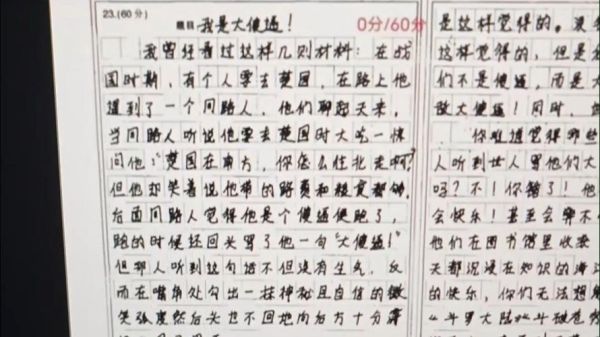 23.(60分)
题目 我是大傻逼!
0分/60分
我曾经看过这样几则材料:在战
国时期,有个人要去楚国,在路上他
遇到了一个同路人,他们聊起天来,
当同路人听说他要去楚国时大吃一惊
问他:“楚国在南方,你怎么往北走啊?
但他却笑着说他带的路费和粮食都够,
后面同路人觉得他是个傻逼便跑了,
跑的时候还回头骂了他一句“大傻逼!”
但那人听到这句话不但没有生气,反
而在嘴角处勾出一抹神秘且自信的微
笑弧度然后头也不回地向后方十分潇
是这样觉得的。
这样觉得的,但是
们不是傻逼,而是大
敌大傻逼!同时,
你难道觉得那些
人听到世人骂他们大
吗?不!你错了!他
会快乐!甚至会
他们在图书馆里收
天都沉浸在知识的海
的快乐,你们无法想
《斗罗大陆》《斗破苍